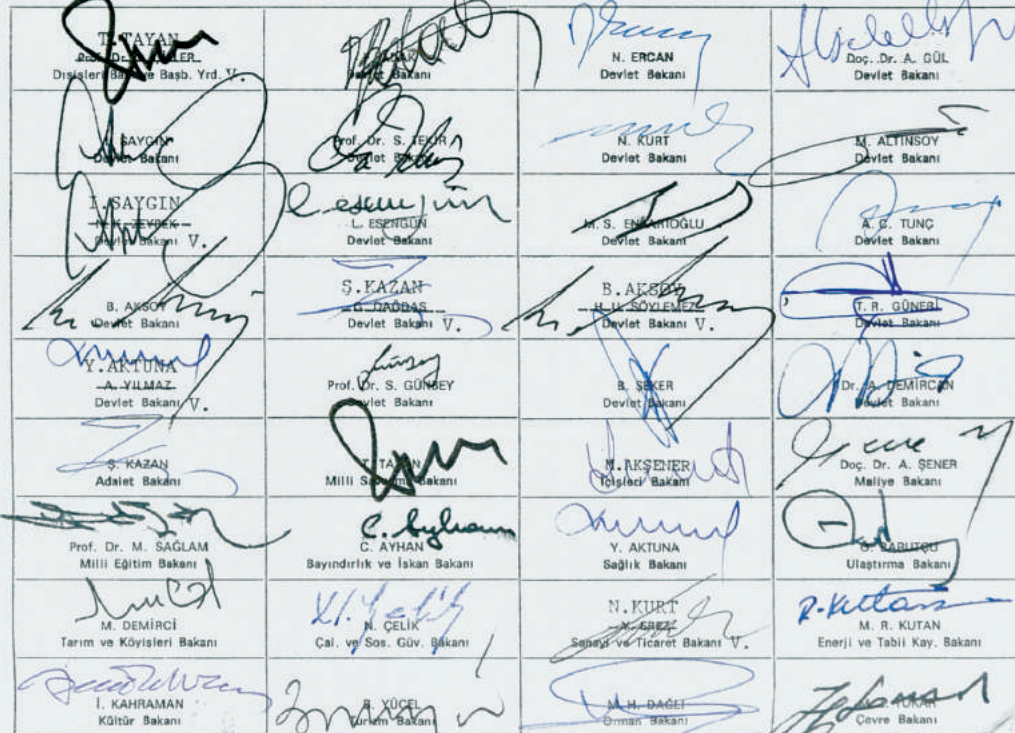 T. TAYAN
Prof. Dr. T. ÇİLLER
Dışişleri Bak. ve Başb. Yrd. V.
Devlet Bakanı
N. ERCAN
Devlet Bakanı
Doç. Dr. A. GÜL
Devlet Bakanı
SAYGIN
Devlet Bakanı
Prof. Dr. S. TEKİR
Devlet Bakanı
N. KURT
Devlet Bakanı
M. ALTINSOY
Devlet Bakanı
I. SAYGIN
N. K. ZEYBEK
Devlet Bakanı V.
L. ESENGÜN
Devlet Bakanı
M. S. ENSARİOĞLU
Devlet Bakanı
A. C. TUNÇ
Devlet Bakanı
B. AKSOY
Devlet Bakanı
Ş.KAZAN
G. DAĞDAŞ
Devlet Bakanı V.
B.AKSOY
H. U. SÖYLEMEZ
Devlet Bakanı V.
T. R. GÜNERİ
Devlet Bakanı
Y.AKTUNA
A. YILMAZ
Devlet Bakanı V.
Prof. Dr. S. GÜNBEY
Devlet Bakanı
B. ŞEKER
Devlet Bakanı
Dr. A. DEMİRCAN
Devlet Bakanı
Ş. KAZAN
Adalet Bakanı
T. TAYAN
Milli Savunma Bakanı
M.AKŞENER
İçişleri Bakanı
Doç. Dr. A. ŞENER
Maliye Bakanı
Prof. Dr. M. SAĞLAM
Milli Eğitim Bakanı
C. Ayhan
C. AYHAN
Bayındırlık ve İskan Bakanı
Y. AKTUNA
Sağlık Bakanı
BARUTÇU
Ulaştırma Bakanı
M. DEMİRCİ
Tarım ve Köyişleri Bakanı
N. Çelik
N. ÇELİK
Çal. ve Sos. Güv. Bakanı
N.KURT
Y. EREZ
Sanayi ve Ticaret Bakanı V.
R. Kutan
M. R. KUTAN
Enerji ve Tabii Kay. Bakanı
İ. KAHRAMAN
Kültür Bakanı
B. YÜCEL
Turizm Bakanı
M. H. DAĞLI
Orman Bakanı
TOKAR
Çevre Bakanı